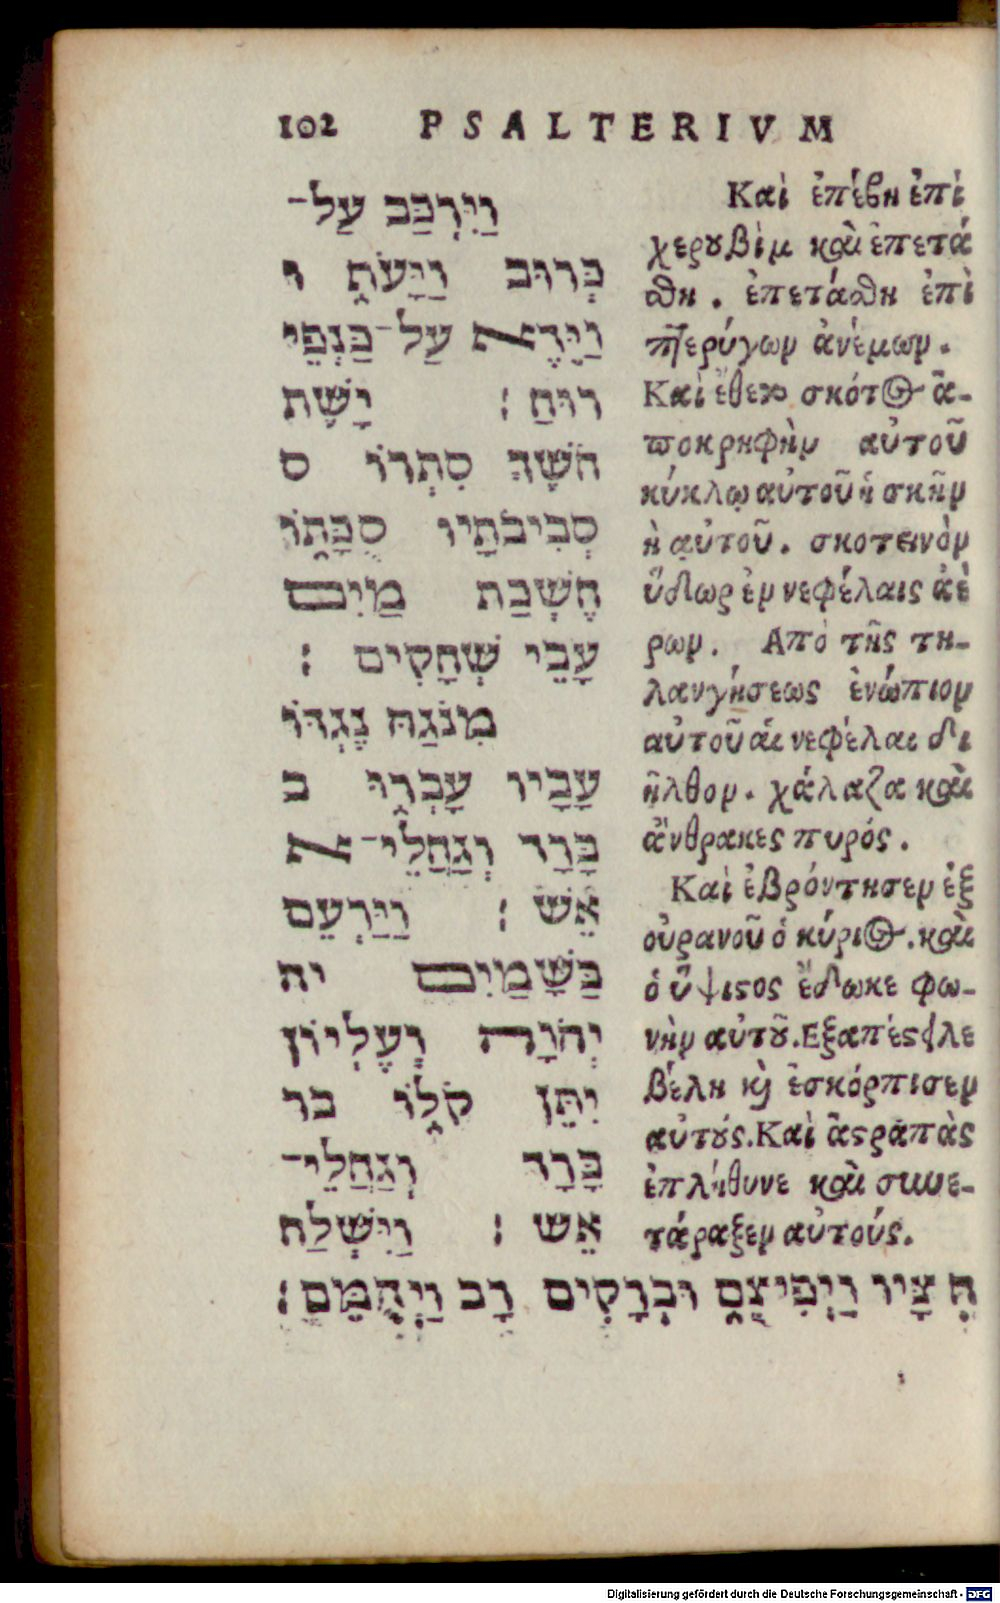 102 PSALTERIVM
וַיִּרְכַּב עַל־
כְּרוּב וַיָּעֹ֑ף ו
וַיֵּ֥דֶא עַל־כַּנְפֵי
רוּחַ׃ יָשֶׁת
חֹשֶׁךְ סִתְרוֹ ס
סְבִיבֹתָיו סֻכָּת֑וֹ
חֶשְׁכַת מַיִם
עָבֵי שְׁחָקִים׃
מִנֹּגַהּ נֶגְדּוֹ
עָבָיו עָבְר֑וּ ב
בָּרָד וְגַחֲלֵי־א
אֵשׁ׃ וַיַּרְעֵם
בַּשָּׁמַיִם יה
יְהֹוָה וְעֶלְיוֹן
יִתֵּן קֹל֑וֹ בר
בָּרָד וְגַחֲלֵי־
אֵשׁ׃ וַיִּשְׁלַח
חִצָּיו וַיְפִיצֵ֑ם וּבְרָקִים רָב וַיְהֻמֵּם׃
Καὶ ἐπέβη ἐπὶ
χερουβὶμ καὶ ἐπετά
σθη. ἐπετάσθη ἐπὶ
πτερύγων ἀνέμων.
Καὶ ἔθετο σκότος ἀ-
ποκρηφὴν αὐτοῦ
κύκλῳ αὐτοῦ ἡ σκῆν
ὴ αὐτοῦ. σκοτεινὸν
ὕδωρ ἐν νεφέλαις ἀὲ
ρων. Απὸ τῆς τη-
λαυγήσεως ἐνώπιον
αὐτοῦ ἁι νεφέλαι δι
ῆλθον. χάλαζα καὶ
ἄνθρακες πυρός.
Καὶ ἐβρόντησεν ἐξ
οὐρανοῦ ὁ κύριος. καὶ
ὁ ὕψιστος ἔδωκε φω-
νὴν αὐτοῦ. Εξαπέστειλε
βέλη καὶ ἐσκόρπισεν
αὐτούς. Καὶ ἀστραπὰς
ἐπλήθυνε καὶ συνε-
τάραξεν αὐτούς.
Digitalisierung gefördert durch die Deutsche Forschungsgemeinschaft - DFG